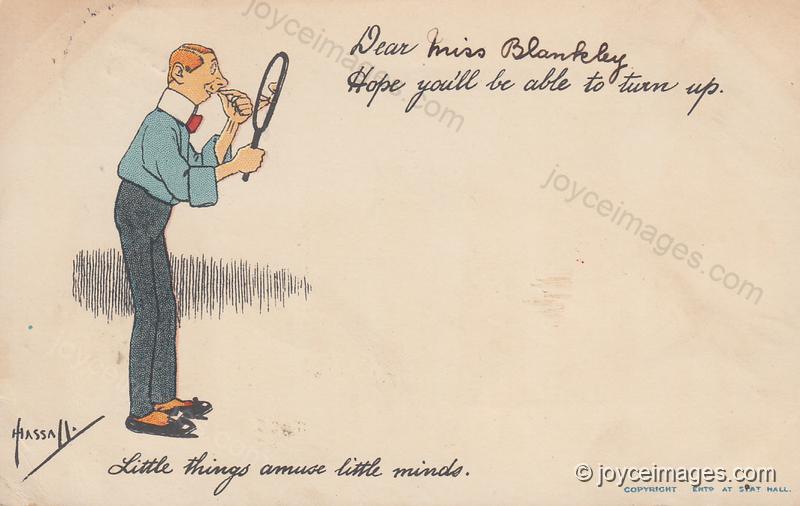 joyceimages.com
Dear Miss Blankley
Hope you'll be able to turn up.
joyceimages.com
joyceimages.com
joyceimages.com
HASSALL.
Little things amuse little minds.
© joyceimages.com
COPYRIGHT ENTD AT STAT HALL.